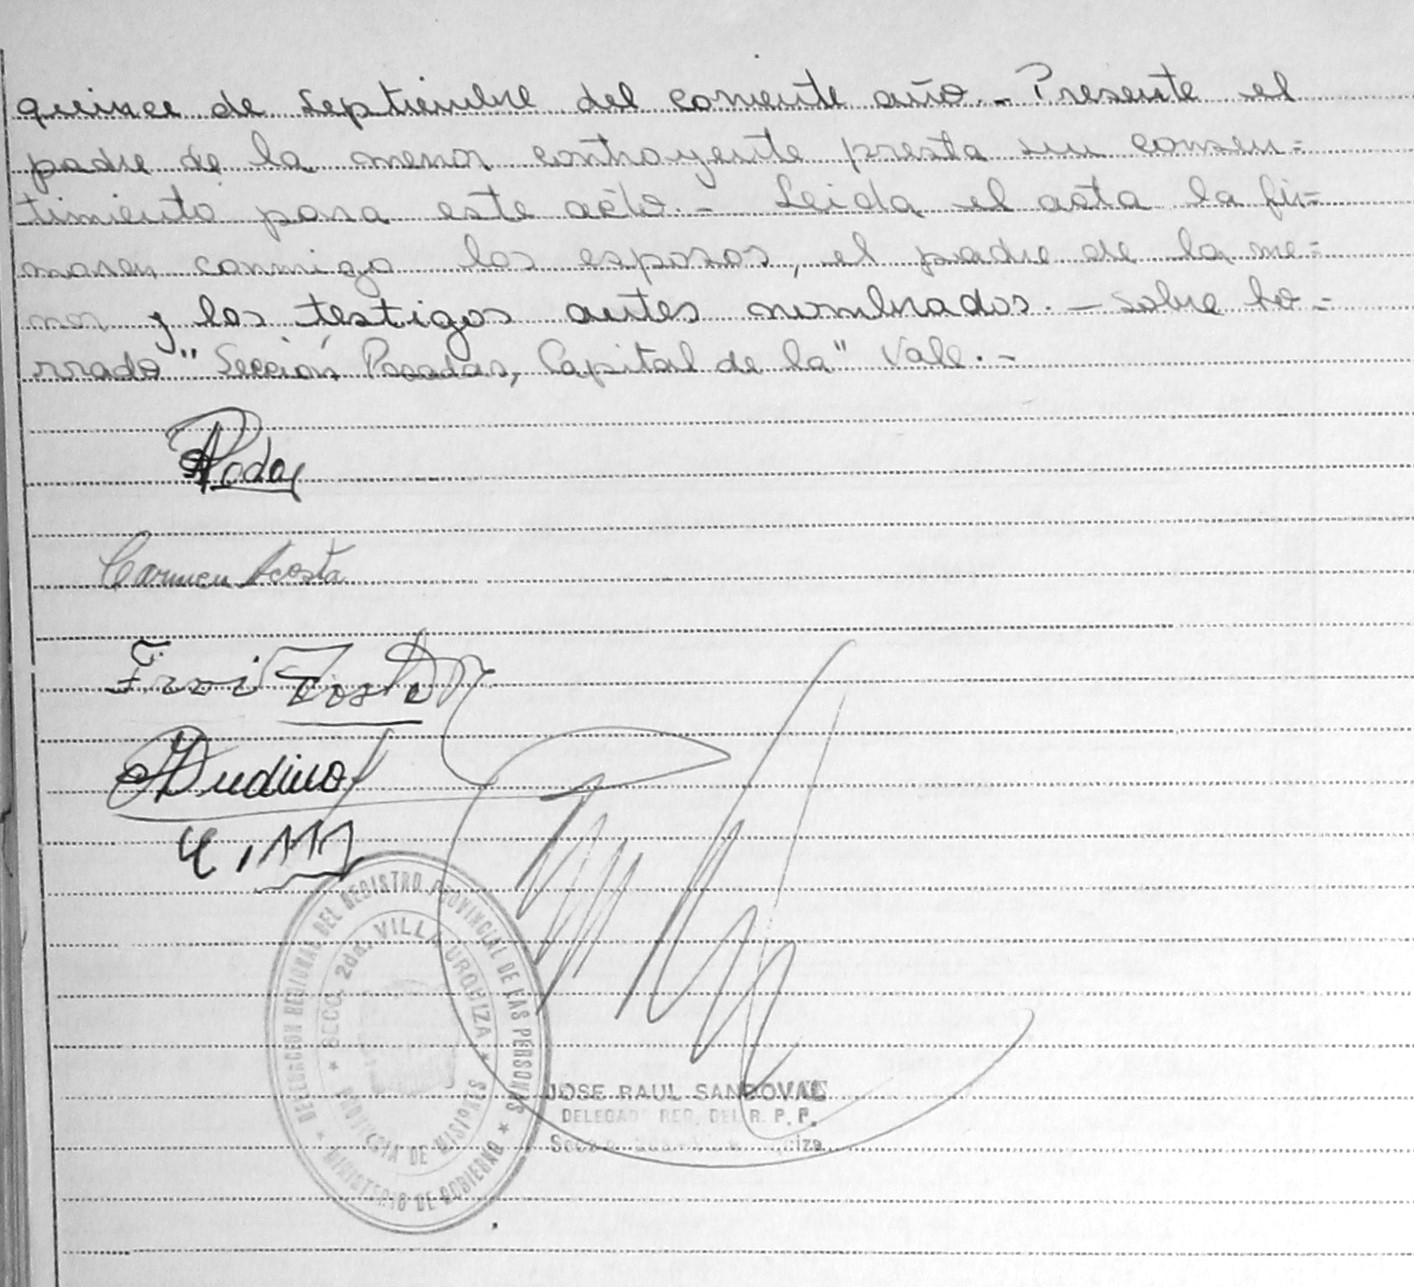 quince de Septiembre del corriente año.- Presente el
padre de la menor contrayente presta su consen=
timiento para este acto.- Leida el acta la fir=
maron conmigo los esposos, el padre de la me=
nor y los testigos antes nombrados.- Sobre bo-
rrado "Sección Posadas, Capital de la" Vale.-
Carmen Acosta
DELEGACION REGIONAL DEL REGISTRO PROVINCIAL DE LAS PERSONAS
★ MINISTERIO DE GOBIERNO ★
★ SECC. 2da. VILLA URQUIZA ★
PROVINCIA DE MISIONES
JOSE RAUL SANDOVAL
DELEGADO REG. DEL R. P. P.